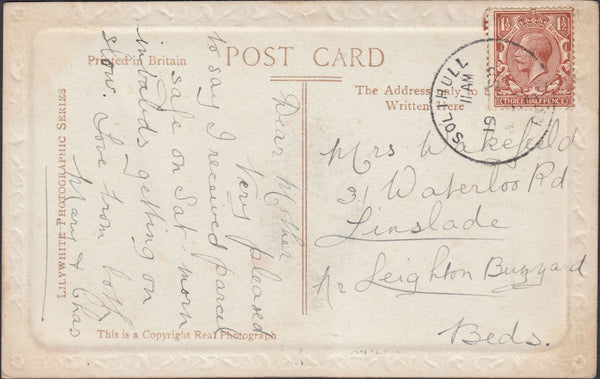 Printed in Britain
POST CARD
The Address only to be
Written Here
LILYWHITE PHOTOGRAPHIC SERIES
This is a Copyright Real Photograph
THREE HALFPENCE
SOLIHULL
11 AM
19
Dear Mother
Very pleased
to say I received parcel
safe on Sat- morn
getting on
slow. Love from both
& Chas
Mrs Wakefield
31 Waterloo Rd
Linslade
Nr Leighton Buzzard
Beds.